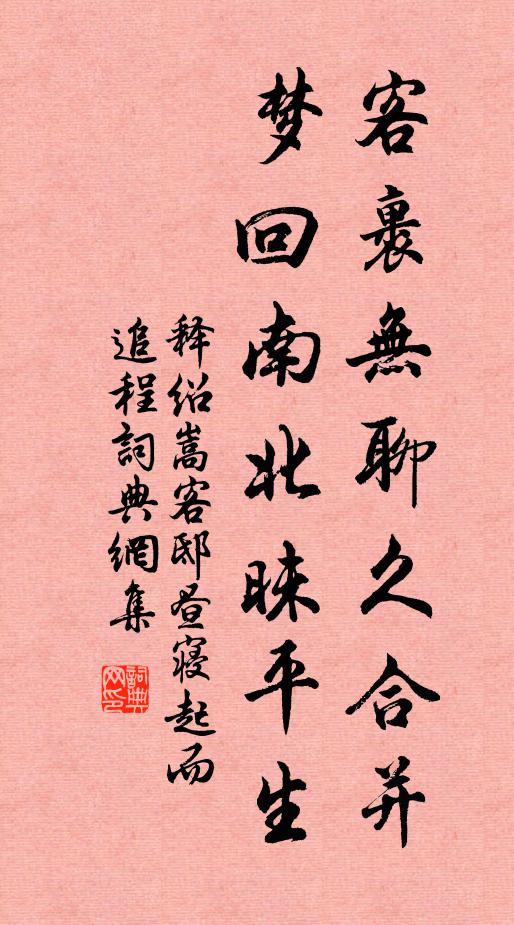 客裏無聊久合并
梦回南北昧平生
释绍嵩客邸昼寝起而
追程詞典網集
詞典网印